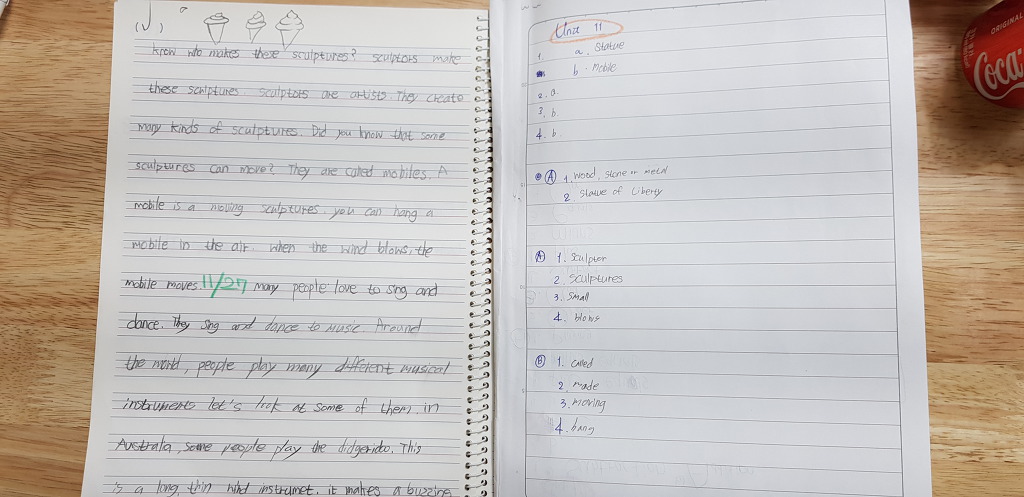 (√)
know who makes these sculptures? sculptors make
these sculptures. sculptors are artists. They create
many kinds of sculptures. Did you know that some
sculptures can move? They are called mobiles. A
mobile is a moving sculptures. you can hang a
mobile in the air. when the wind blows, the
mobile moves. 11/27 many people love to sing and
dance. They sing and dance to music. Around
the world, people play many different musical
instruments let's look at some of them. in
Australia, some people play the didgeridoo. This
is a long, thin wind instrumet. it makes a buzzing
Unit 11
1. a. Statue
b. Mobile
2. a.
3. b.
4. b.
A 1. wood, stone or metal
2. Statue of Liberty
A 1. Sculptor
2. Sculptures
3. Small
4. blows
B 1. called
2. made
3. moving
4. hang
ORIGINAL
Coca